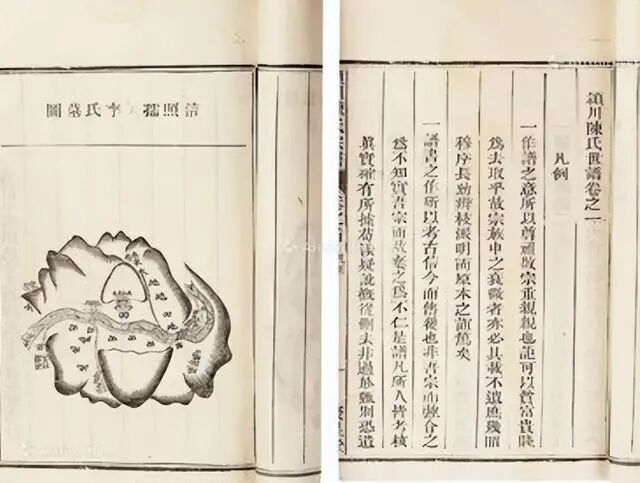 潁川陳氏世譜卷之一
凡例
一作譜之意所以尊祖敬宗重親親也詎可以貧富貴賤
爲去取乎故宗族中之衰微者亦必具載不遺庶幾昭
穆序長幼辨枝派明而原本之誼篤矣
一譜書之作所以考古信今而傳後也非吾宗而妄合之
爲不知實吾宗而故棄之爲不仁是譜凡所入皆考核
眞實確有所據苟涉疑訛槪從刪去非過於甄別恐遺
照孺李氏墓圖